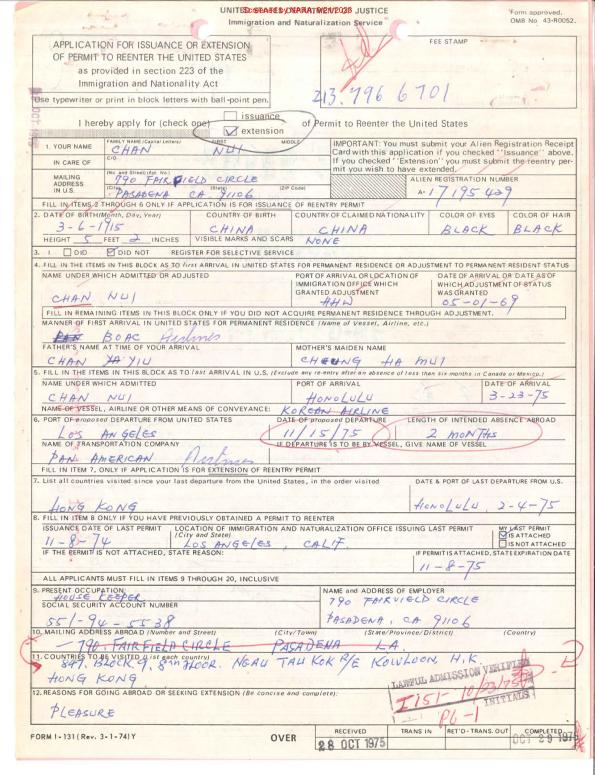 UNITED STATES DEPARTMENT OF JUSTICE
Immigration and Naturalization Service
Form approved.
OMB No. 43-R0052.
APPLICATION FOR ISSUANCE OR EXTENSION
OF PERMIT TO REENTER THE UNITED STATES
as provided in section 223 of the
Immigration and Nationality Act
Use typewriter or print in block letters with ball-point pen.
FEE STAMP
213.796 6701
I hereby apply for (check one) issuance
extension of Permit to Reenter the United States
1. YOUR NAME FAMILY NAME (Capital Letters) FIRST MIDDLE
CHAN NUI
IN CARE OF C/O
MAILING ADDRESS IN U.S. (No. and Street) (Apt. No.)
790 FAIRFIELD CIRCLE
(City) (State) (ZIP Code)
PASADENA CA 91106
IMPORTANT: You must submit your Alien Registration Receipt
Card with this application if you checked "Issuance" above.
If you checked "Extension" you must submit the reentry per-
mit you wish to have extended.
ALIEN REGISTRATION NUMBER
A- 17195429
FILL IN ITEMS 2 THROUGH 6 ONLY IF APPLICATION IS FOR ISSUANCE OF REENTRY PERMIT
2. DATE OF BIRTH (Month, Day, Year) COUNTRY OF BIRTH COUNTRY OF CLAIMED NATIONALITY COLOR OF EYES COLOR OF HAIR
3-6-1915 CHINA CHINA BLACK BLACK
HEIGHT 5 FEET 2 INCHES VISIBLE MARKS AND SCARS NONE
3. I DID DID NOT REGISTER FOR SELECTIVE SERVICE
4. FILL IN THE ITEMS IN THIS BLOCK AS TO first ARRIVAL IN UNITED STATES FOR PERMANENT RESIDENCE OR ADJUSTMENT TO PERMANENT RESIDENT STATUS
NAME UNDER WHICH ADMITTED OR ADJUSTED PORT OF ARRIVAL OR LOCATION OF IMMIGRATION OFFICE WHICH GRANTED ADJUSTMENT DATE OF ARRIVAL OR DATE AS OF WHICH ADJUSTMENT OF STATUS WAS GRANTED
CHAN NUI HHW 05-01-69
FILL IN REMAINING ITEMS IN THIS BLOCK ONLY IF YOU DID NOT ACQUIRE PERMANENT RESIDENCE THROUGH ADJUSTMENT.
MANNER OF FIRST ARRIVAL IN UNITED STATES FOR PERMANENT RESIDENCE (Name of Vessel, Airline, etc.)
PAN BOAC Airlines
FATHER'S NAME AT TIME OF YOUR ARRIVAL MOTHER'S MAIDEN NAME
CHAN YA YIU CHEUNG HA MUI
5. FILL IN THE ITEMS IN THIS BLOCK AS TO last ARRIVAL IN U.S. (Exclude any re-entry after an absence of less than six months in Canada or Mexico.)
NAME UNDER WHICH ADMITTED PORT OF ARRIVAL DATE OF ARRIVAL
CHAN NUI HONOLULU 3-23-75
NAME OF VESSEL, AIRLINE OR OTHER MEANS OF CONVEYANCE: KOREAN AIRLINE
6. PORT OF proposed DEPARTURE FROM UNITED STATES DATE OF proposed DEPARTURE LENGTH OF INTENDED ABSENCE ABROAD
LOS ANGELES 11/15/75 2 MONTHS
NAME OF TRANSPORTATION COMPANY IF DEPARTURE IS TO BE BY VESSEL, GIVE NAME OF VESSEL
PAN AMERICAN Airlines
FILL IN ITEM 7, ONLY IF APPLICATION IS FOR EXTENSION OF REENTRY PERMIT
7. List all countries visited since your last departure from the United States, in the order visited DATE & PORT OF LAST DEPARTURE FROM U.S.
HONG KONG HONOLULU, 2-4-75
8. FILL IN ITEM 8 ONLY IF YOU HAVE PREVIOUSLY OBTAINED A PERMIT TO REENTER
ISSUANCE DATE OF LAST PERMIT LOCATION OF IMMIGRATION AND NATURALIZATION OFFICE ISSUING LAST PERMIT (City and State) MY LAST PERMIT
IS ATTACHED
IS NOT ATTACHED
11-8-74 LOS ANGELES, CALIF.
IF THE PERMIT IS NOT ATTACHED, STATE REASON: IF PERMIT IS ATTACHED, STATE EXPIRATION DATE
11-8-75
ALL APPLICANTS MUST FILL IN ITEMS 9 THROUGH 20, INCLUSIVE
9. PRESENT OCCUPATION: NAME and ADDRESS OF EMPLOYER
HOUSE KEEPER 790 FAIRVIELD CIRCLE
SOCIAL SECURITY ACCOUNT NUMBER
551-94-5538 PASADENA, CA 91106
10. MAILING ADDRESS ABROAD (Number and Street) (City/Town) (State/Province/District) (Country)
790. FAIRFIELD CIRCLE PASADENA LA.
11. COUNTRIES TO BE VISITED (List each country)
847, BLOCK 9, 8TH FLOOR. NGAU TAU KOK R/E KOWLOON, H.K.
HONG KONG
12. REASONS FOR GOING ABROAD OR SEEKING EXTENSION (Be concise and complete):
PLEASURE
LAWFUL ADMISSION VERIFIED
I151-10/23/75
INITIALS
FORM I-131 (Rev. 3-1-74) Y OVER RECEIVED TRANS IN RET'D-TRANS. OUT COMPLETED
28 OCT 1975 OCT 29 1975